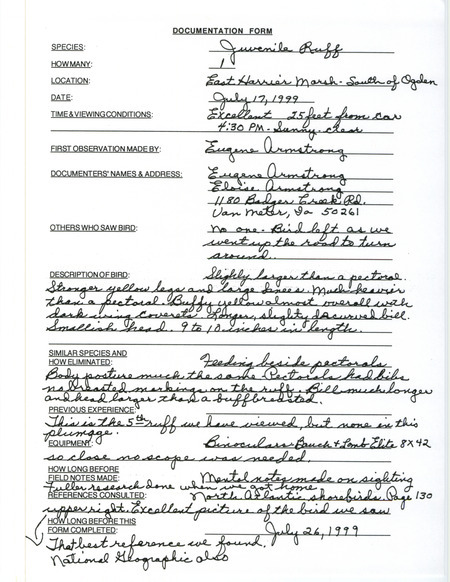 DOCUMENTATION FORM
SPECIES: Juvenile Ruff
HOW MANY: 1
LOCATION: East Harrier Marsh - South of Ogden
DATE: July 17, 1999
TIME & VIEWING CONDITIONS: Excellent 25 feet from car
4:30 PM - Sunny, clear
FIRST OBSERVATION MADE BY: Eugene Armstrong
DOCUMENTERS' NAMES & ADDRESS: Eugene Armstrong
Eloise Armstrong
1180 Badger Creek Rd.
Van Meter, Ia 50261
OTHERS WHO SAW BIRD: No one - Bird left as we
went up the road to turn
around.
DESCRIPTION OF BIRD: Slighly larger than a pectoral.
Stronger yellow legs and large knees. Much heavier
than a pectoral. Buffy yellow almost overall with
dark wing coverets. Longer, slighty decurved bill.
Smallish head. 9 to 10 inches in length.
SIMILAR SPECIES AND
HOW ELIMINATED: Feeding beside pectorals
Body posture much the same Pectorals had bibs
no breasted markings on the ruff. Bill much longer
and head larger than a buffbreasted.
PREVIOUS EXPERIENCE
This is the 5th ruff we have viewed, but none in this
plumage.
EQUIPMENT: Binoculars Bauch & Lomb Elite 8X42
so close no scope was needed.
HOW LONG BEFORE
FIELD NOTES MADE: Mental notes made on sighting
Fuller research done when we got home.
REFERENCES CONSULTED: North Atlantic shorebirds. Page 130
upper right. Excellent picture of the bird we saw
HOW LONG BEFORE THIS
FORM COMPLETED: July 26, 1999
That best reference we found.
National Geographic also